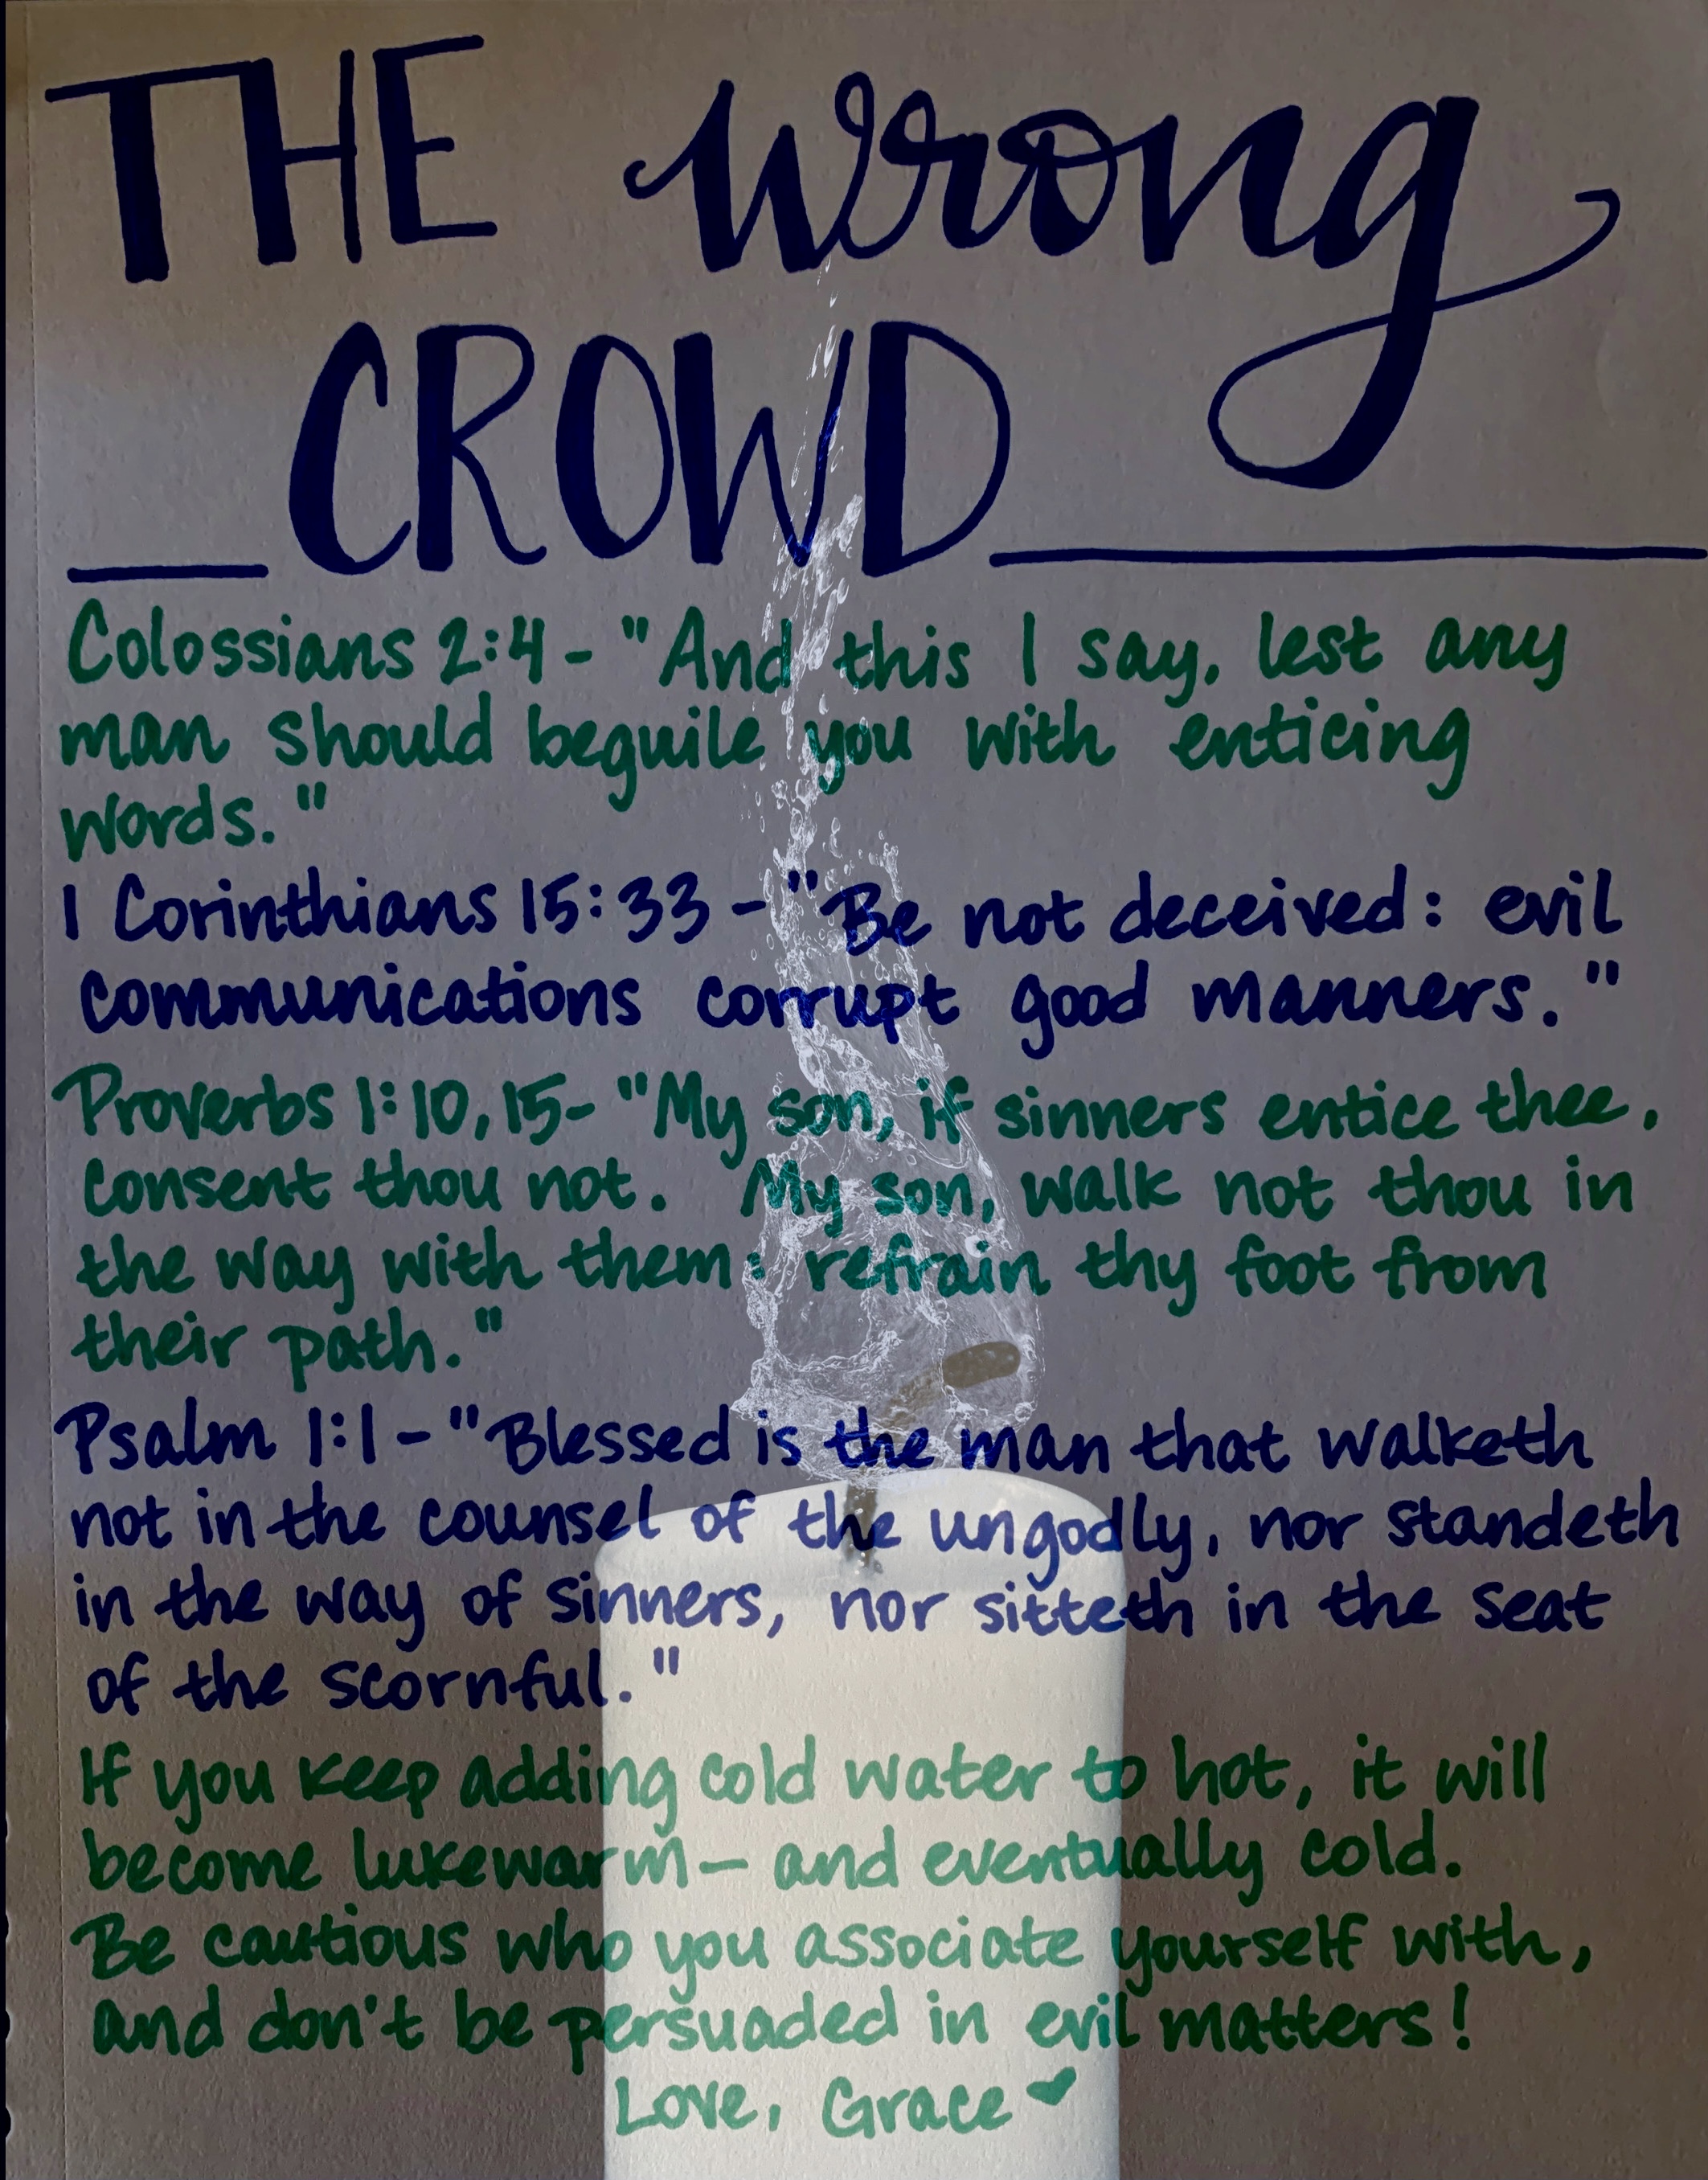 THE wrong
CROWD
Colossians 2:4 - "And this I say, lest any
man should beguile you with enticing
words."
1 Corinthians 15:33 - "Be not deceived: evil
communications corrupt good manners."
Proverbs 1:10, 15- "My son, if sinners entice thee,
consent thou not. My son, walk not thou in
the way with them; refrain thy foot from
their path."
Psalm 1:1 - "Blessed is the man that walketh
not in the counsel of the ungodly, nor standeth
in the way of sinners, nor sitteth in the seat
of the scornful."
If you keep adding cold water to hot, it will
become lukewarm — and eventually cold.
Be cautious who you associate yourself with,
and don't be persuaded in evil matters!
Love, Grace ♥